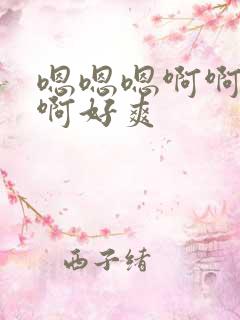 嗯嗯嗯啊啊
啊好爽
西子绪